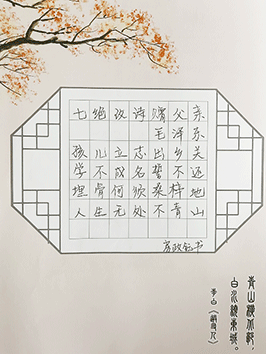 七绝改诗赠父亲
毛泽东
孩儿立志出乡关
学不成名誓不还
埋骨何须桑梓地
人生无处不青山
青山横北郭，
白水绕东城。
李白《送友人》